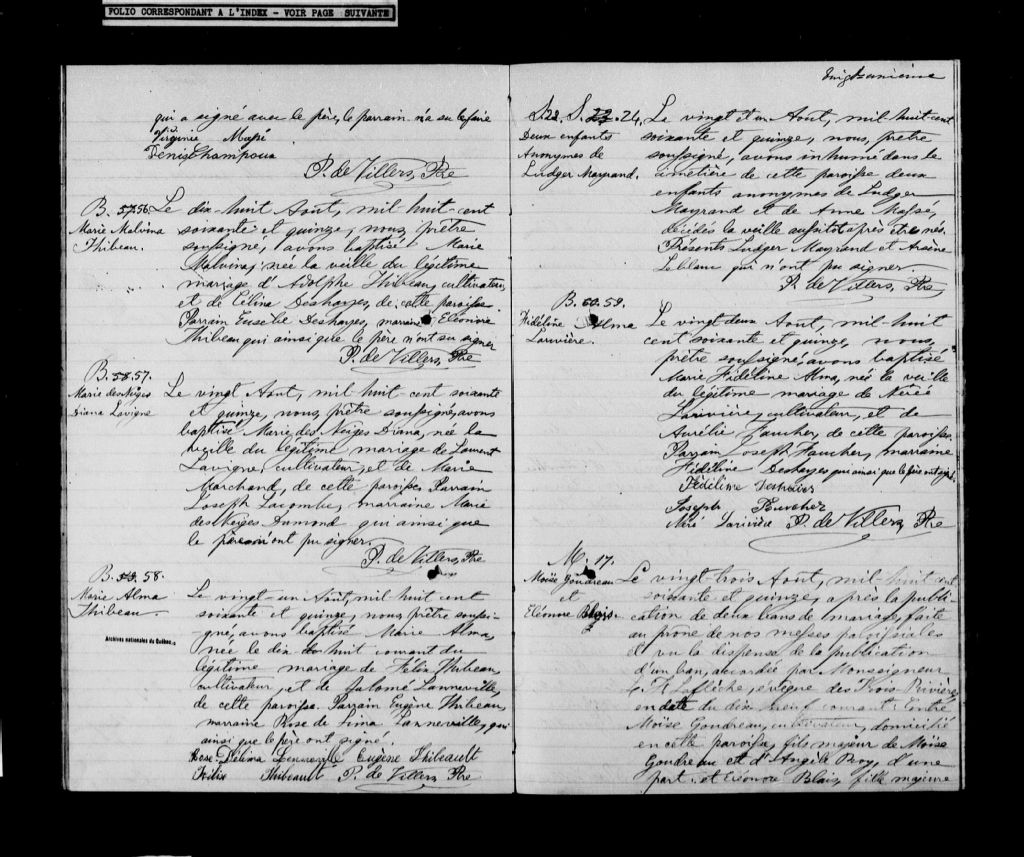 FOLIO CORRESPONDANT A L'INDEX - VOIR PAGE SUIVANTE
qui a signé avec le père, le parrain n'a su le faire
Virginie Massé
Denis Champoux
P. de Villers, Ptre
B. 57. 56.
Marie Malvina
Thibeau.
Le dix-huit Aout, mil-huit-cent
soixante et quinze, nous, prêtre
soussigné, avons baptisé Marie
Malvina, née la veille du légitime
mariage d'Adolphe Thibeau, cultivateur,
et de Célina Desharges, de cette paroisse
Parrain Eusèbe Desharges, marraine Eléonore
Thibeau qui ainsi que le père n'ont su signer
P. de Villers, Ptre
B. 58. 57.
Marie des Neiges
Diana Lavigne
Le vingt Aout, mil-huit cent soixante
et quinze, nous, prêtre soussigné, avons
baptisé Marie des Neiges Diana, née la
veille du légitime mariage de Laurent
Lavigne, cultivateur, et de Marie
Marchand, de cette paroisse Parrain
Joseph Lacombe, marraine Marie
des Neiges Dumond qui ainsi que
le père n'ont pu signer.
P. de Villers, Ptre
B. 59. 58.
Marie Alma
Thibeau.
Archives nationales du Québec
Le vingt-un Août, mil-huit cent
soixante et quinze, nous, prêtre soussi-
gné, avons baptisé Marie Alma,
née le dix-huit courant du
légitime mariage de Félix Thibeau,
cultivateur, et de Salomé Lanneville,
de cette paroisse. Parrain Eugène Thibeau,
marraine Rose de Lima Lanneville, qui
ainsi que le père ont signé.
Rose Délima Lenneville Eugène Thibeault
Félix Thibeault P. de Villers, Ptre
S. 22. S. 23. 24.
Deux enfants
Anonymes de
Ludger Mayrand.
Le vingt et un Aout, mil-huit-cent
soixante et quinze, nous, prêtre
soussigné, avons inhumé dans le
cimetière de cette paroisse deux
enfants anonymes de Ludger
Mayrand et de Anne Massé,
décédés la veille aussitôt après être nés.
Présents Ludger Mayrand et Arsène
Leblanc qui n'ont pu signer
P. de Villers, Ptre
B. 60. 59.
Fidéline Alma
Larivière.
Le vingt-deux Aout, mil-huit
cent soixante et quinze, nous,
prêtre soussigné avons baptisé
Marie Fidéline Alma, née la veille
du légitime mariage de Nérée
Larivière, cultivateur, et de
Aurélie Faucher, de cette paroisse.
Parrain Joseph Faucher, marraine
Fidéline Desharges qui ainsi que le père ont signé.
Fidéline
Joseph Faucher
Néré Larivière P. de Villers, Ptre
M. 17.
Moïse Goudreau
et
Eléonore Blais.
Le vingt-trois Aout, mil-huit cent
soixante et quinze, après la publi-
cation de deux bans de mariage, faite
au prône de nos messes paroissiales
et vu la dispense de la publication
d'un ban, accordée par Monseigneur
L. F. Laflèche, évêque des Trois Rivières,
en date du dix-neuf courant entre
Moïse Goudreau, cultivateur, domicilié
en cette paroisse, fils majeur de Moïse
Goudreau et d'Angèle Roy, d'une
part et Eléonore Blais, fille majeure